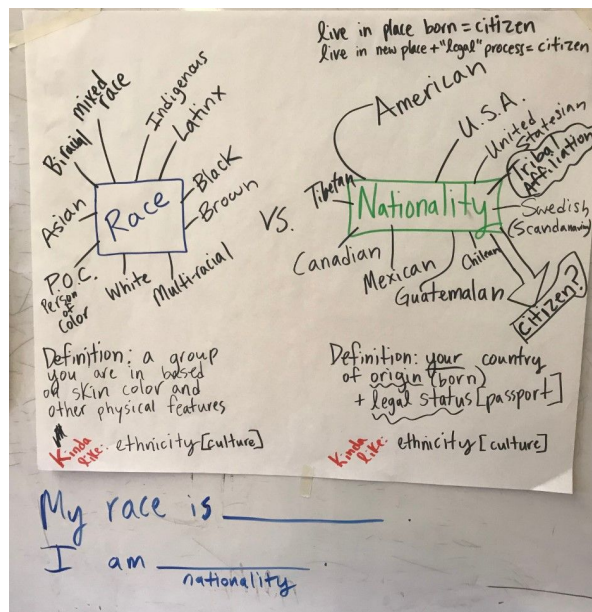 live in place born = citizen
live in new place + "legal" process = citizen
Biracial
mixed
race
Indigenous
Latinx
Asian
Race
Black
Brown
P.O.C.
Person
of
Color
White
Multi-racial
VS.
American
U.S.A.
United
Statesian
Tribal
Affiliation
Tibetan
Nationality
Swedish
(Scandanavian)
Canadian
Mexican
Guatemalan
Chilean
Citizen?
Definition: a group
you are in based
on skin color and
other physical features
Kinda
like: ethnicity [culture]
Definition: your country
of origin (born)
+ legal status [passport]
Kinda
like: ethnicity [culture]
My race is
I am
nationality